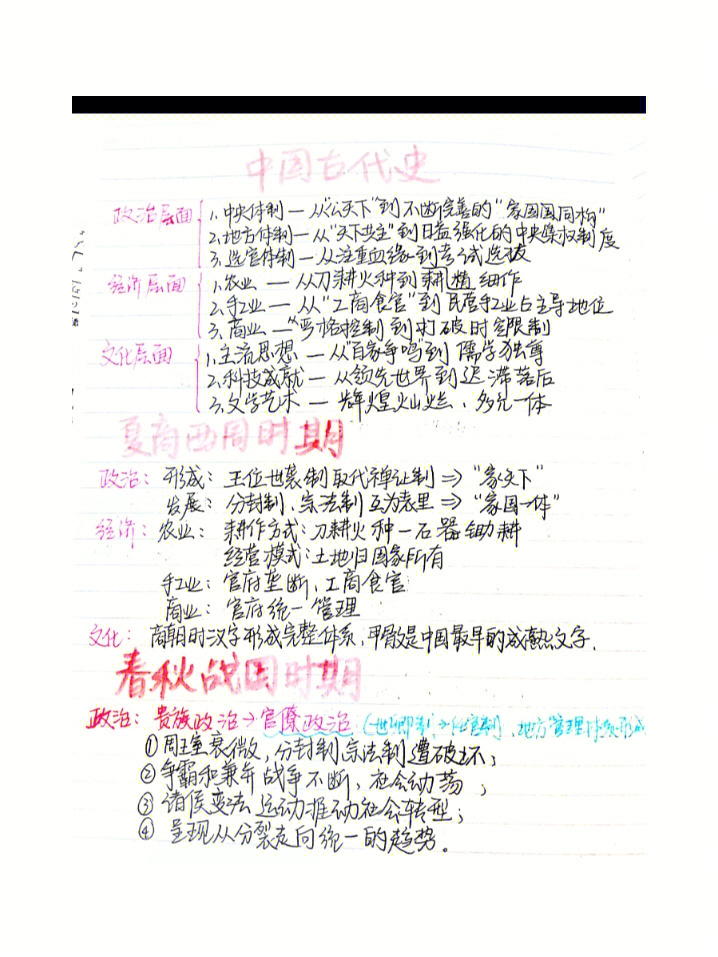 中国古代史
政治层面 1.中央体制—从"公天下"到不断完善的"家国同构"
2.地方体制—从"天下共主"到日益强化的中央集权制度
3.选官体制—从注重血缘到考试选拔
经济层面 1.农业—从刀耕火种到耕植细作
2.手工业—从"工商食官"到民营手工业占主导地位
3.商业—从严格控制到打破时空限制
文化层面 1.主流思想—从"百家争鸣"到儒学独尊
2.科技成就—从领先世界到迟滞落后
3.文学艺术—辉煌灿烂、多元一体
夏商西周时期
政治：形成：王位世袭制取代禅让制⇒"家天下"
发展：分封制、宗法制互为表里⇒"家国一体"
经济：农业：耕作方式：刀耕火种—石器锄耕
经营模式：土地归国家所有
手工业：官府垄断、工商食官
商业：官府统一管理
文化：商朝时汉字形成完整体系，甲骨文是中国最早的成熟文字.
春秋战国时期
政治：贵族政治→官僚政治（世卿制→任官制）、地方管理体系形成
①周王室衰微，分封制宗法制遭破坏；
②争霸和兼并战争不断，社会动荡；
③诸侯变法运动推动社会转型；
④呈现从分裂走向统一的趋势。